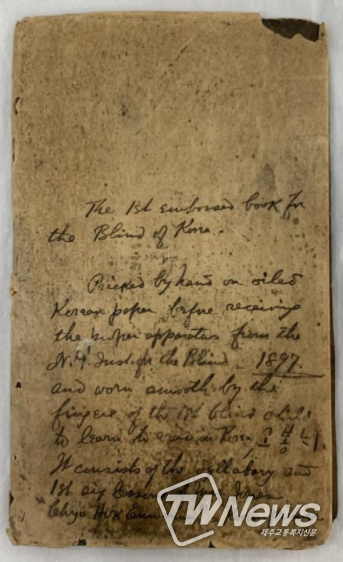 The 1st embossed book for
the Blind of Korea.
Pricked by hand on oiled
Korean paper before receiving
the proper apparatus from the
N.Y. Inst. for the Blind. 1897.
and worn smooth by the
fingers of the 1st blind child
to learn to read in Korea
It consists of the syllabary and
1st Lesson
TWNews
제주교통복지신문